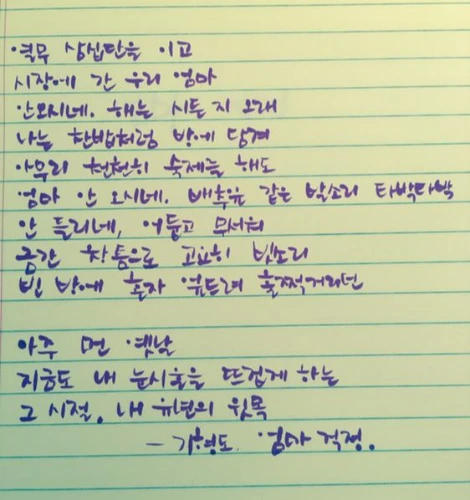 열무 삼십단을 이고
시장에 간 우리 엄마
안오시네. 해는 시든 지 오래
나는 찬밥처럼 방에 담겨
아무리 천천히 숙제를 해도
엄마 안 오시네. 배추잎 같은 발소리 타박타박
안 들리네, 어둡고 무서워
금간 창틈으로 고요히 빗소리
빈 방에 혼자 엎드려 훌쩍거리던
아주 먼 옛날
지금도 내 눈시울을 뜨겁게 하는
그 시절, 내 유년의 윗목
- 기형도. 엄마 걱정.